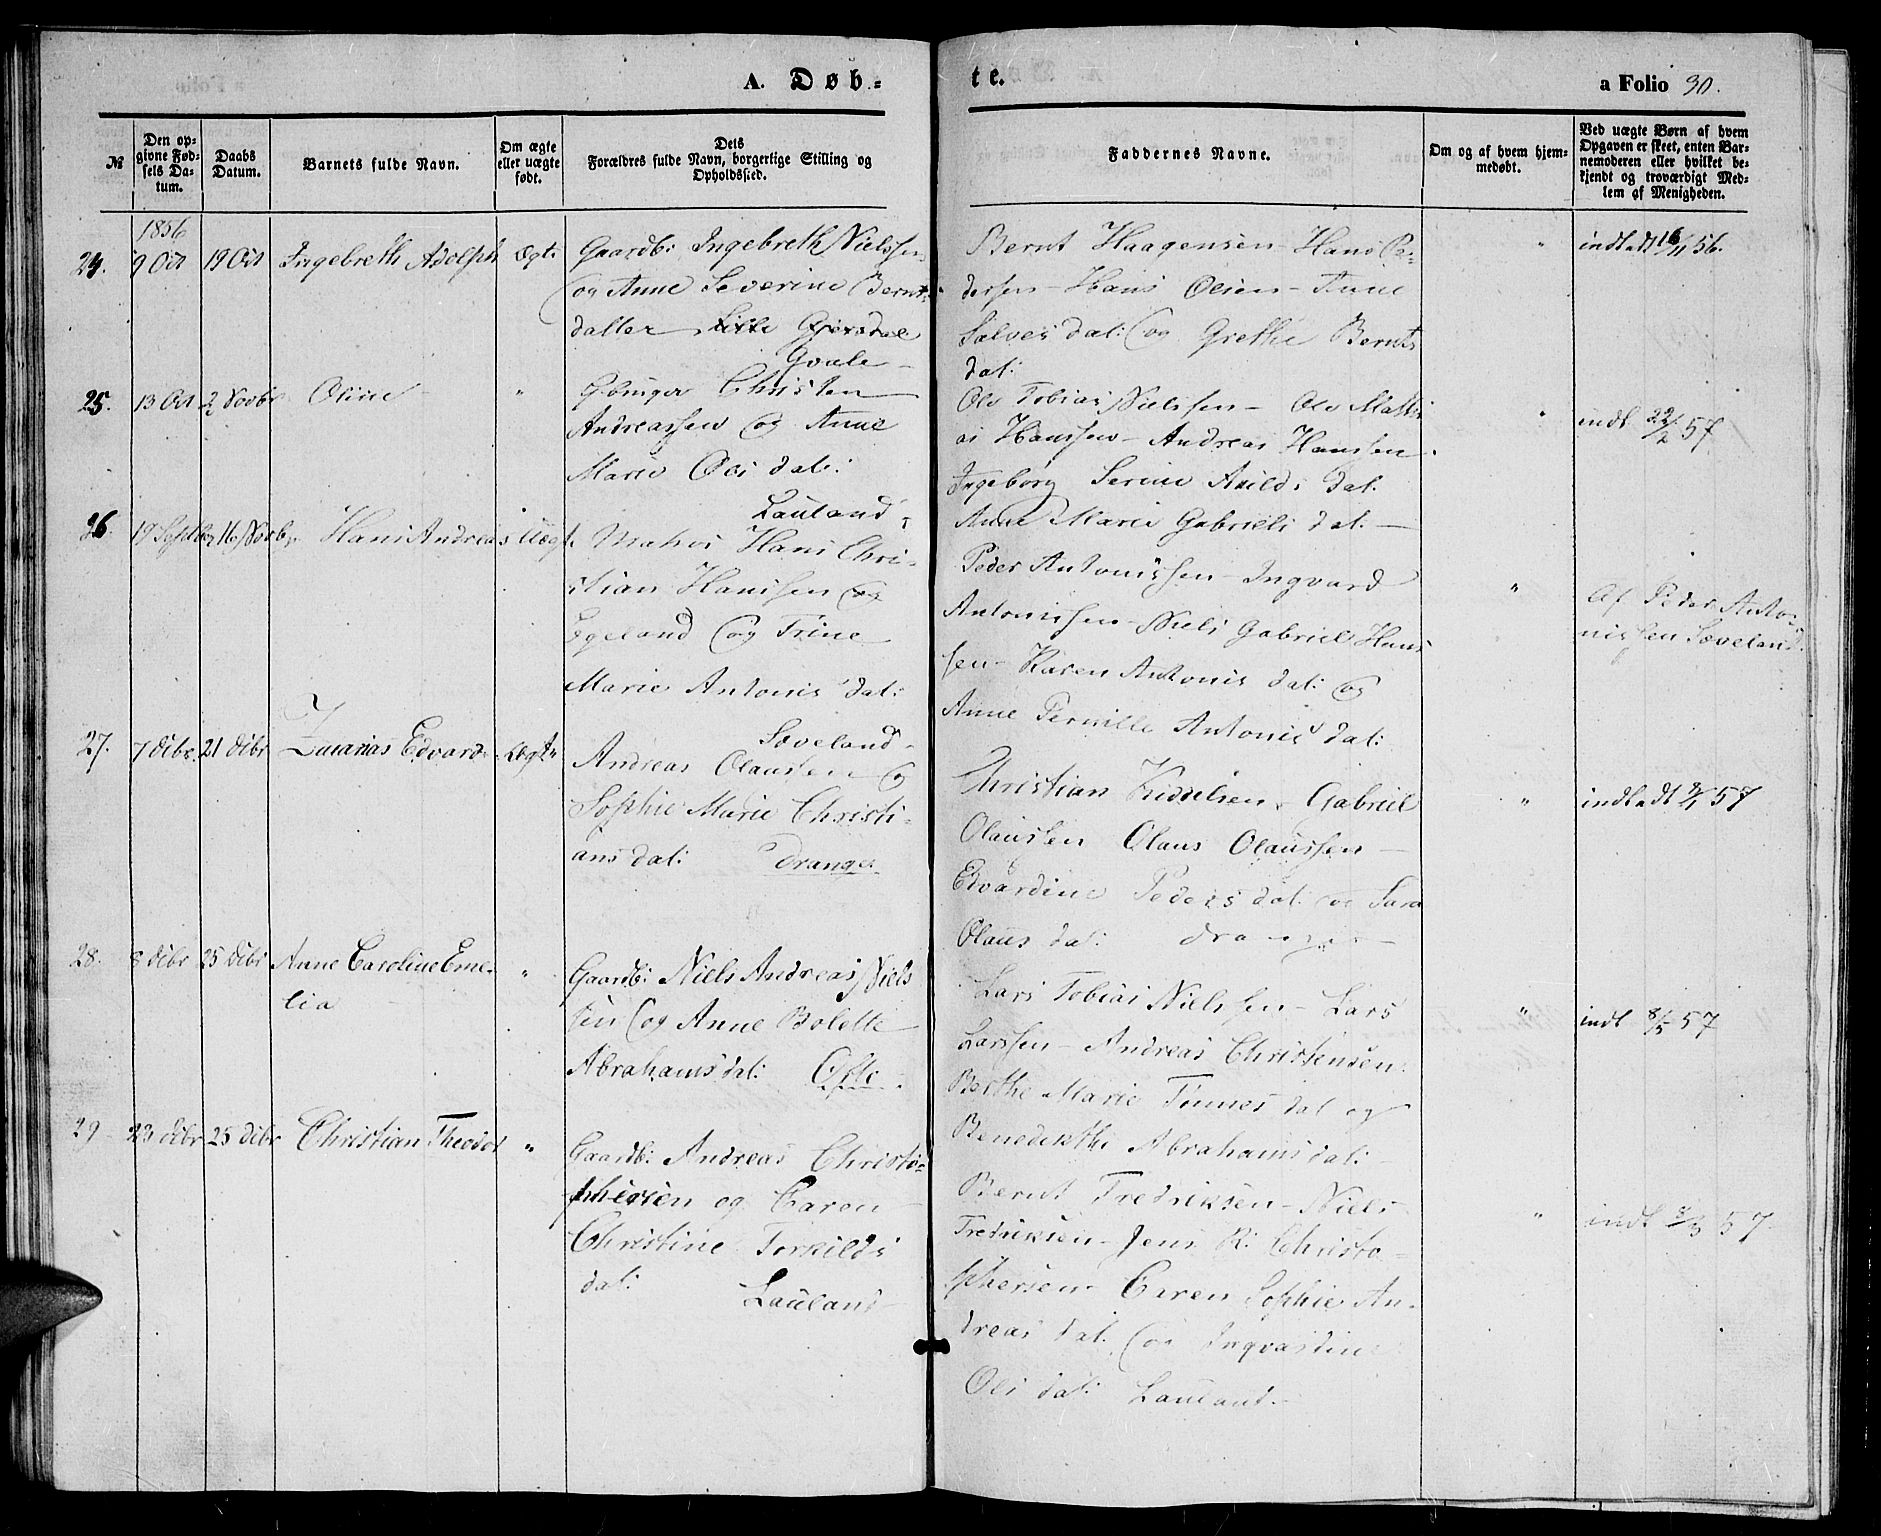 A. Døb=
te.
a Folio 30.
№
Den op-
givne Fød-
sels Da-
tum.
Daabs
Datum.
Barnets fulde Navn.
Om ægte
eller uægte
født.
Dets
Forældres fulde Navn, borgerlige Stilling og
Opholdssted.
Faddernes Navne.
Om og af hvem hjem-
medøbt.
Ved uægte Børn af hvem
Opgaven er skeet, enten Bar-
nemoderen eller hvilket be-
kjendt og troværdigt Med-
lem af Menigheden.
1856
24. 9 Oct 19 Oct Ingebreth Adolph Ægt.
Gaardb: Ingebreth Nielssen
og Anne Severine Bernts
datter Lille Gjersdal
Gvale
Bernt Haagensen - Hans Pe-
dersen - Hans Olsen - Anne
Salves dat: og Grethe Bernts
dat:
" indladt 16/11 56.
25. 13 Oct 2 Novbr. Oline "
Gbruger Christen
Andreassen og Anne
Marie Ols dat:
Lauland
Ole Tobias Nielssen - Ole Mathi
as Hanssen - Andreas Hanssen.
Ingeborg Serine Arilds dat.
Anne Marie Gabriels dat: -
" indt 22/2 57
26. 19 Septbr 16 Novbr. Hans Andreas Uægt.
Matros Hans Chri-
stian Hanssen
Egeland og Trine
Marie Antonis dat:
Søveland
Peder Antonissen - Ingvard
Antonissen - Niels Gabriel Hans
sen - Karen Antonis dat: og
Anne Pernille Antonis dat:
"
Af Peder Anto-
nissen Søveland.
27. 7 Decbr. 21 Decbr Zacarias Edvard Ægt
Andreas Olaussen og
Sophie Marie Christi-
ans dat: Drange
Christian Kiddelsen. Gabriel
Olaussen Olaus Olaussen -
Edvardine Peders dat: og Sara
Olaus dat: Drange
" indladt 4/1 57
28. 8 Decbr 25 Decbr Anne Caroline Eme-
lia "
Gaardb: Niels Andreas Niels
sen og Anne Bolette
Abrahams dat: Ofte
Lars Tobias Nielssen - Lars
Larssen - Andreas Christensen.
Berthe Marie Tønnes dat og
Benedikthe Abrahams dat:
" indt 8/5 57
29 23 Decbr 25 Decbr Christian Theodor "
Gaardb: Andreas Christo-
phersen og Caren
Christine Torkilds
dat: Lauland
Bernt Fredriksen - Niels
Fredriksen - Jens R: Christo-
phersen - Caren Sophie An-
dreas dat: og Ingvardine
Ols dat: Lauland.
" indt 8/3 57